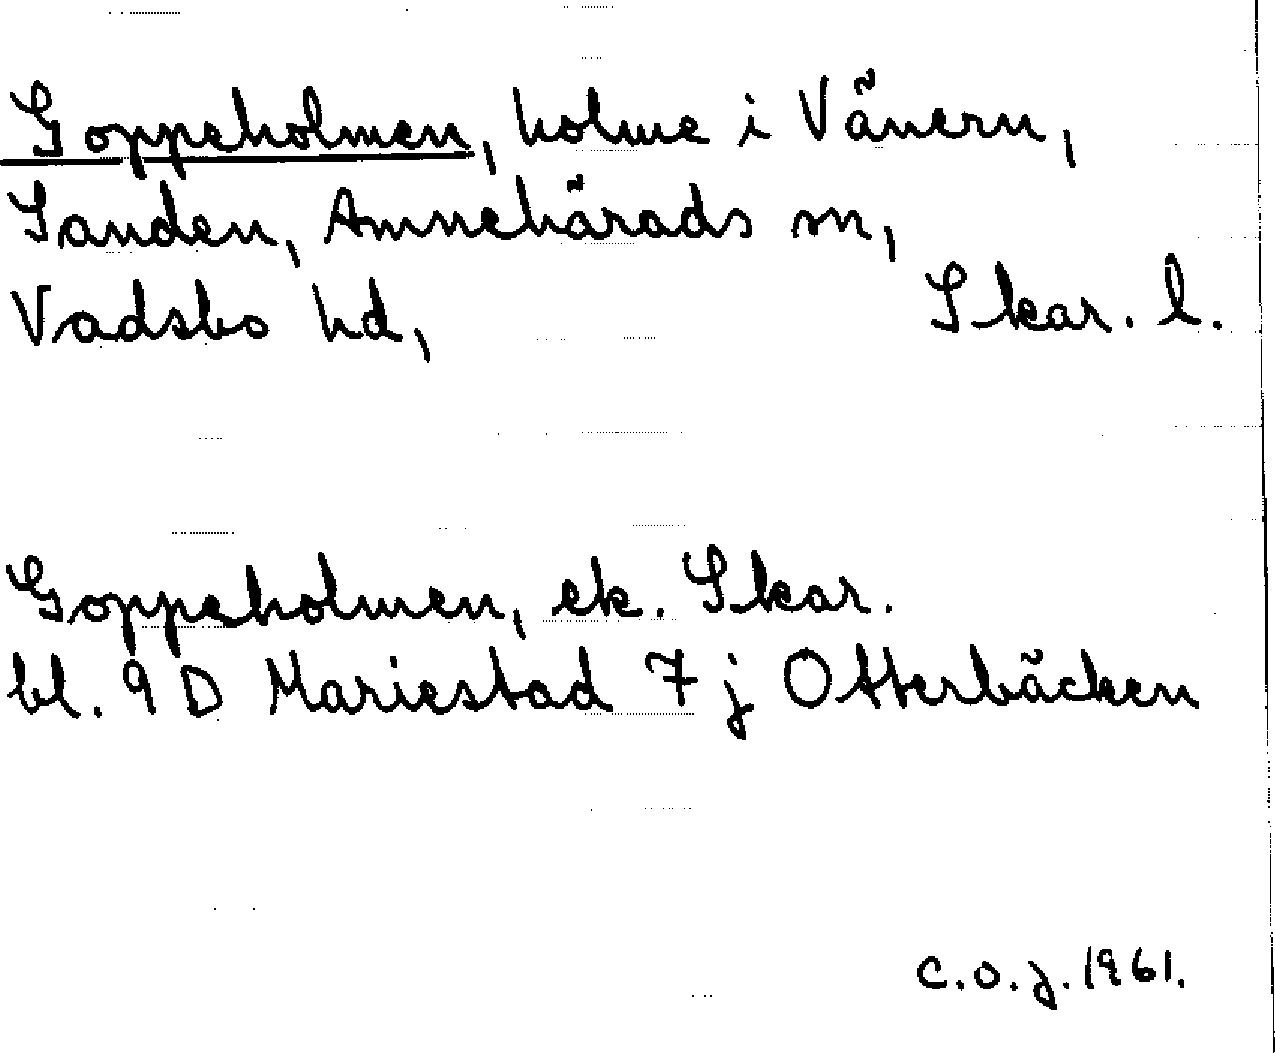 Goppeholmen, holme i Vänern,
Sanden, Amnehärads sn,
Vadsbo hd, Skar. l.
Goppeholmen, ek. Skar.
bl. 9 D Mariestad 7 j Otterbäcken
C.O.J. 1961.